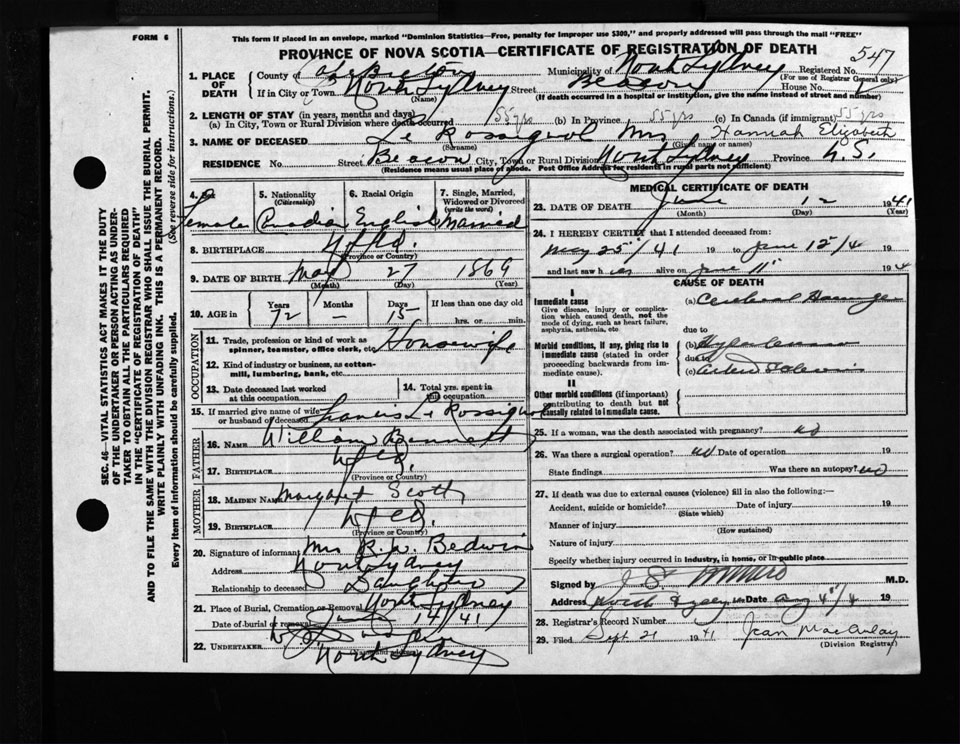 FORM 6
This form if placed in an envelope, marked "Dominion Statistics—Free, penalty for improper use $300," and properly addressed will pass through the mail "FREE"
PROVINCE OF NOVA SCOTIA—CERTIFICATE OF REGISTRATION OF DEATH
547
1. PLACE OF DEATH County of Cape Breton Municipality of North Sydney Registered No.
(For use of Registrar General only)
If in City or Town North Sydney Street House No.
(Name) (If death occurred in a hospital or institution, give the name instead of street and number)
2. LENGTH OF STAY (in years, months and days)
(a) In City, Town or Rural Division where death occurred 55 yrs (b) In Province 55 yrs (c) In Canada (if immigrant) 55 yrs
3. NAME OF DECEASED Le Rossignol Mrs Hannah Elizabeth
(Surname) (Given name or names)
RESIDENCE No. Street Beacon City, Town or Rural Division North Sydney Province N.S.
(Residence means usual place of abode. Post Office Address for residents in rural parts not sufficient)
4. Sex Female
5. Nationality (Citizenship) Canadian
6. Racial Origin English
7. Single, Married, Widowed or Divorced (write the word) Married
8. BIRTHPLACE Nfld.
(Province or Country)
9. DATE OF BIRTH May 27 1869
(Month) (Day) (Year)
10. AGE in Years 72 Months — Days 15 If less than one day old
hrs. or min.
OCCUPATION
11. Trade, profession or kind of work as spinner, teamster, office clerk, etc. Housewife
12. Kind of industry or business, as cotton-mill, lumbering, bank, etc.
13. Date deceased last worked at this occupation
14. Total yrs. spent in this occupation
15. If married give name of wife or husband of deceased Francis Le Rossignol
FATHER
16. NAME William Bennett
17. BIRTHPLACE Nfld.
(Province or Country)
MOTHER
18. MAIDEN NAME Margaret Scott
19. BIRTHPLACE Nfld.
(Province or Country)
20. Signature of informant Mrs R.W. Bedwin
Address North Sydney
Relationship to deceased Daughter
21. Place of Burial, Cremation or Removal North Sydney
Date of burial or removal June 14/41
22. UNDERTAKER
North Sydney
(Name and address)
MEDICAL CERTIFICATE OF DEATH
23. DATE OF DEATH June 12 1941
(Month) (Day) (Year)
24. I HEREBY CERTIFY that I attended deceased from:
May 25/41 19 to June 12/4 19
and last saw h alive on June 11 194
CAUSE OF DEATH
I
Immediate cause
Give disease, injury or complication which caused death, not the mode of dying, such as heart failure, asphyxia, asthenia, etc
(a) Cerebral
due to
Morbid conditions, if any, giving rise to immediate cause (stated in order proceeding backwards from immediate cause).
(b)
due to
(c)
II
Other morbid conditions (if important) contributing to death but not causally related to immediate cause.
25. If a woman, was the death associated with pregnancy? no
26. Was there a surgical operation? no Date of operation 19
State findings Was there an autopsy? no
27. If death was due to external causes (violence) fill in also the following:—
Accident, suicide or homicide? Date of injury 19
(State which)
Manner of injury
(How sustained)
Nature of injury
Specify whether injury occurred in industry, in home, or in public place
Signed by M.D.
Address North Sydney Date Aug 4/4 19
28. Registrar's Record Number
29. Filed Sept 21 1941 Jean MacAulay
(Division Registrar)
SEC. 46—VITAL STATISTICS ACT MAKES IT THE DUTY
OF THE UNDERTAKER OR PERSON ACTING AS UNDER-
TAKER TO OBTAIN ALL THE PARTICULARS REQUIRED
IN THE "CERTIFICATE OF REGISTRATION OF DEATH"
AND TO FILE THE SAME WITH THE DIVISION REGISTRAR WHO SHALL ISSUE THE BURIAL PERMIT.
WRITE PLAINLY WITH UNFADING INK. THIS IS A PERMANENT RECORD.
Every item of information should be carefully supplied. (See reverse side for instructions.)